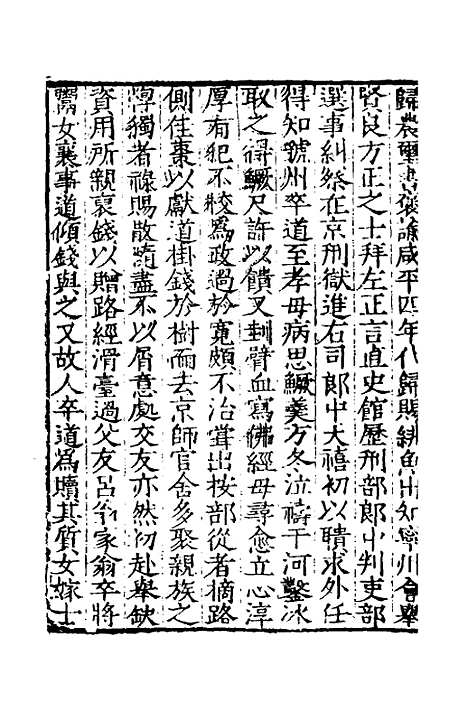 歸農璽書褒諭咸平四年代歸賜緋魚出知寧州會舉
賢良方正之士拜左正言直史館歷刑部郎中判吏部
選事糾察在京刑獄進右司郎中大禧初以聵求外任
得知虢州卒道至孝母病思鱖羹方冬泣禱于河鑿冰
取之得鱖尺許以饋又刲臂血寫佛經母尋愈立心淳
厚有犯不校爲政過於寬頗不治嘗出按部從者摘路
側佳棗以獻道掛錢於樹而去京師官舍多聚親族之
惸獨者祿賜散施盡不以屑意與交友亦然初赴舉缺
資用所親裒錢以贈路經滑臺過父友呂家翁卒將
鬻女襄事道傾錢與之又故人卒道爲贖其質女嫁士